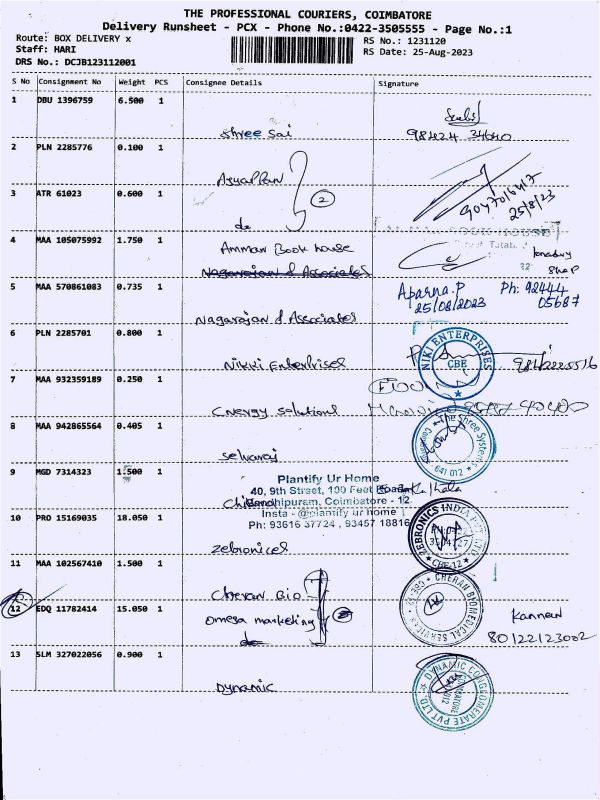 THE PROFESSIONAL COURIERS, COIMBATORE
Delivery Runsheet - PCX - Phone No.:0422-3505555 - Page No.:1
Route: BOX DELIVERY x
RS No.: 1231120
Staff: HARI
RS Date: 25-Aug-2023
DRS No.: DCJB123112001
S No Consignment No Weight PCS Consignee Details Signature
1 DBU 1396759 6.500 1
Shree Sai 98424 34640
2 PLN 2285776 0.100 1
Ayyappan
3 ATR 61023 0.600 1
do 2 9047016417
25/8/23
4 MAA 105075992 1.750 1
Amman Book house
Nagarajan & Associates
5 MAA 570861083 0.735 1
Aparna.P Ph: 92444
25/08/2023 05687
Nagarajan & Associates
6 PLN 2285701 0.800 1
Nikki Enterprises
NIKI ENTERPRISES
CBE
7 MAA 932359189 0.250 1
Energy solutions
8 MAA 942865564 0.405 1
Selvaraj
The Shree Systems
641 012
9 MGD 7314323 1.500 1
Plantify Ur Home
40, 9th Street, 100 Feet Road
Gandhipuram, Coimbatore - 12
Insta - @plantify ur home
Ph: 93616 37724 , 93457 18816
10 PRO 15169035 18.050 1
Zebronics
ZEBRONICS INDIA PVT LTD
CBE-12
11 MAA 102567410 1.500 1
Cheran Bio
CHERAN BIOMEDICAL SERVICES
CBE-12
12 EDQ 11782414 15.050 1
Omega marketing 2
do
Kannan
80122123002
13 SLM 327022056 0.900 1
Dynamic
DYNAMIC CONGLOMERATE PVT LTD
COIMBATORE